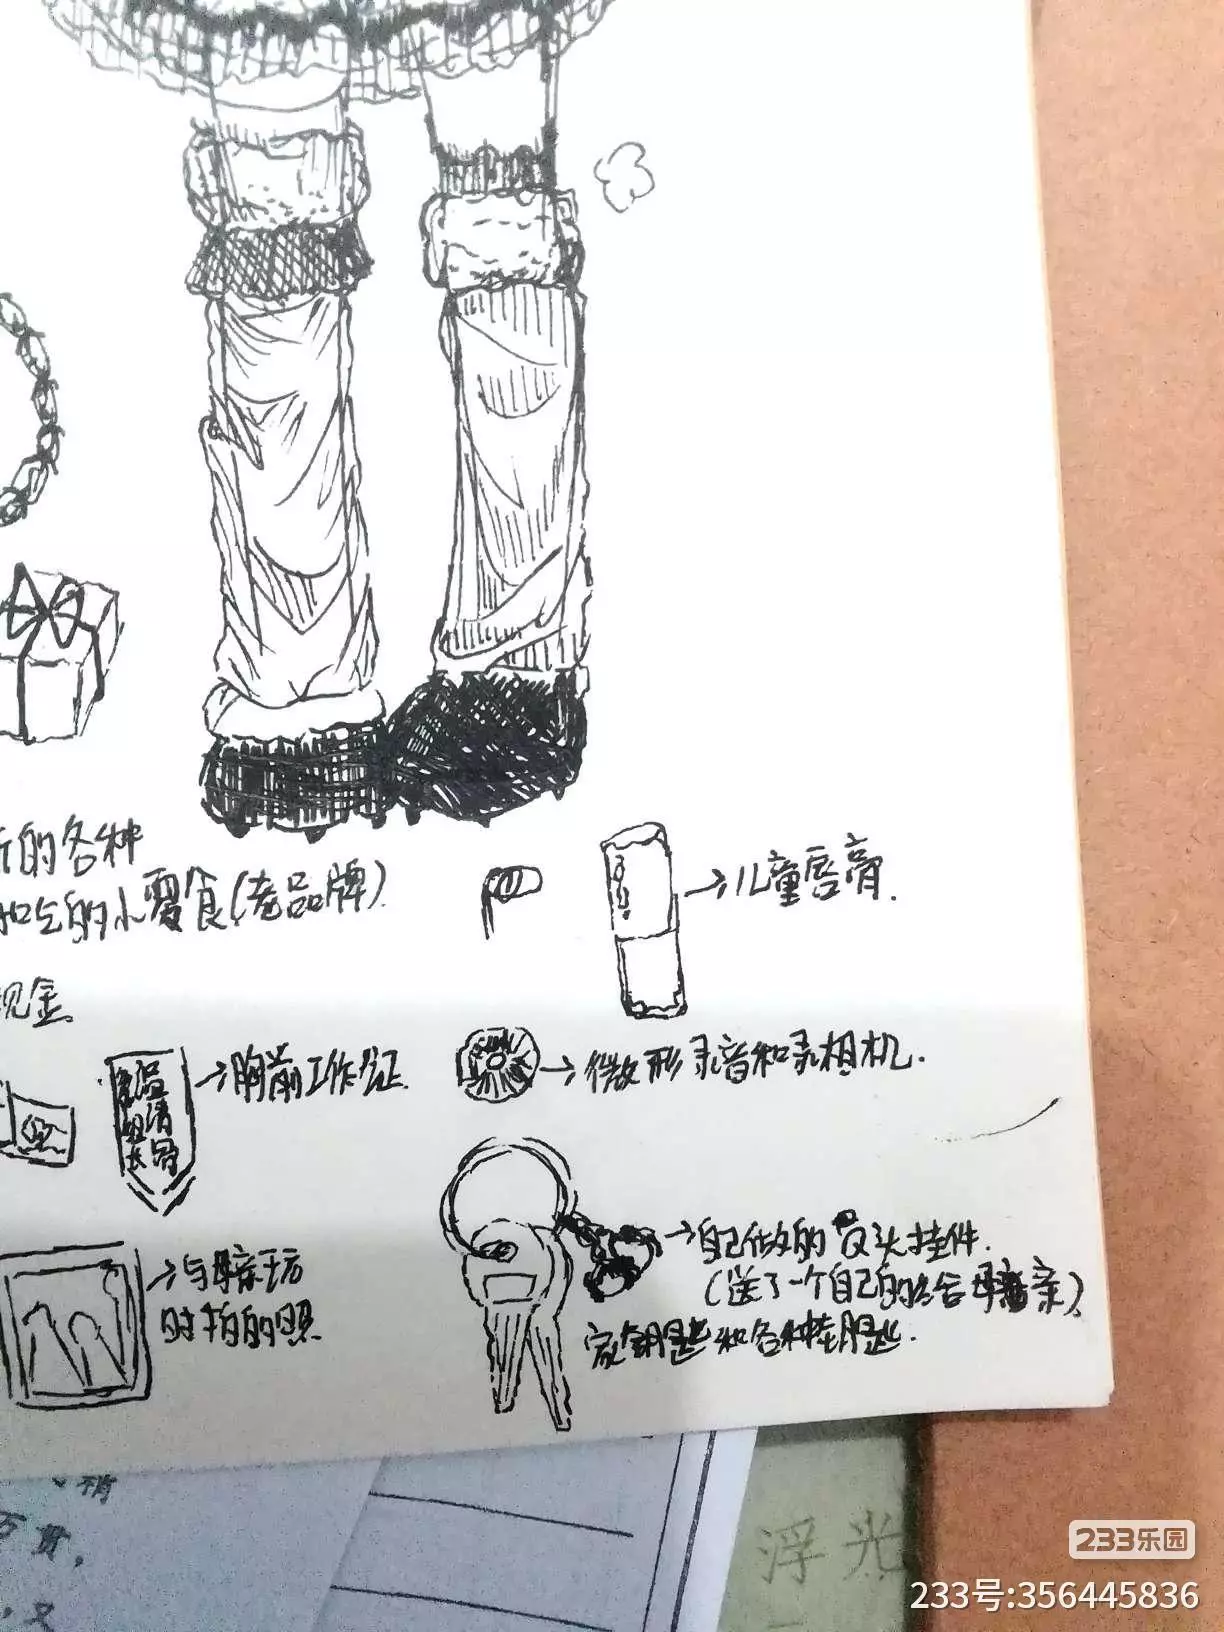 的各种
的小零食(老品牌).
现金
儿童唇膏.
胸前工作证.
微形录音和录相机.
组长
温清
自己做的 头挂件.
(送了一个自己的给 亲).
与 玩
时拍的照
家钥匙和各种 钥匙.
浮光
233乐园
233号:356445836